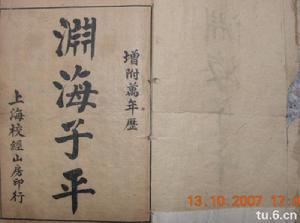 增附萬年歷
淵海子平
上海校經山房印行
13.10.2007
tu.6.cn